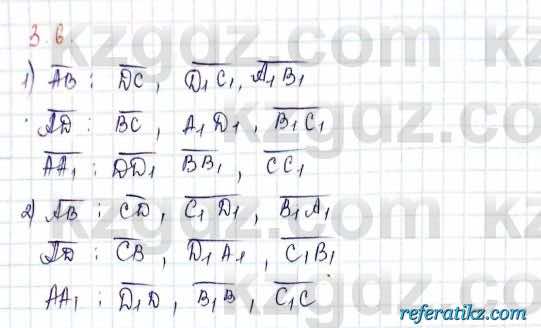 3.6.
1) A̅B̅ : D̅C̅, D̅₁C̅₁, A̅₁B̅₁
A̅D̅ : B̅C̅, A₁D₁, B̅₁C̅₁
A̅A̅₁ : D̅D̅₁ B̅B̅₁, C̅C̅₁
2) A̅B̅ : C̅D̅, C̅₁D̅₁, B̅₁A̅₁
A̅D̅ : C̅B̅, D̅₁A̅₁, C̅₁B̅₁
AA₁ : D̅₁D̅, B̅₁B̅, C̅₁C̅
kzgdz.com
referatikz.com